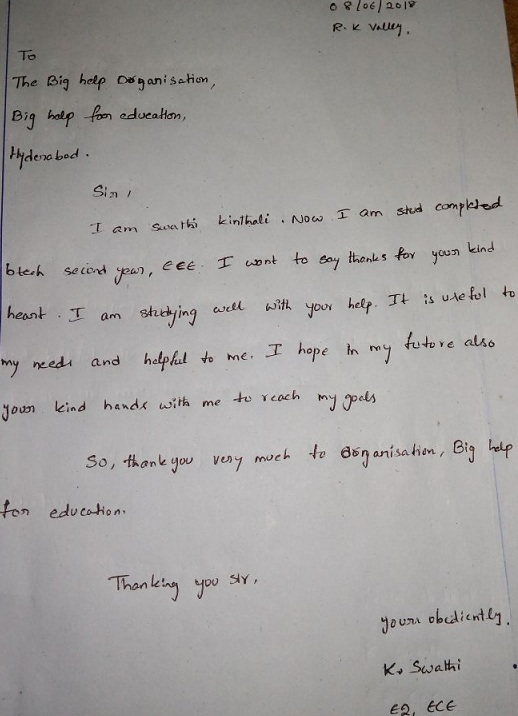 08/06/2018
R.K Valley,
To
The Big help Organisation,
Big help for education,
Hyderabad.
Sir,
I am swathi kinthali. Now I am stud completed
btech second year, EEE. I want to say thanks for your kind
heart. I am studying well with your help. It is useful to
my needs and helpful to me. I hope in my future also
your kind hands with me to reach my goals
So, thank you very much to Organisation, Big help
for education.
Thanking you sir,
your obediently,
K. Swathi
E2, ECE